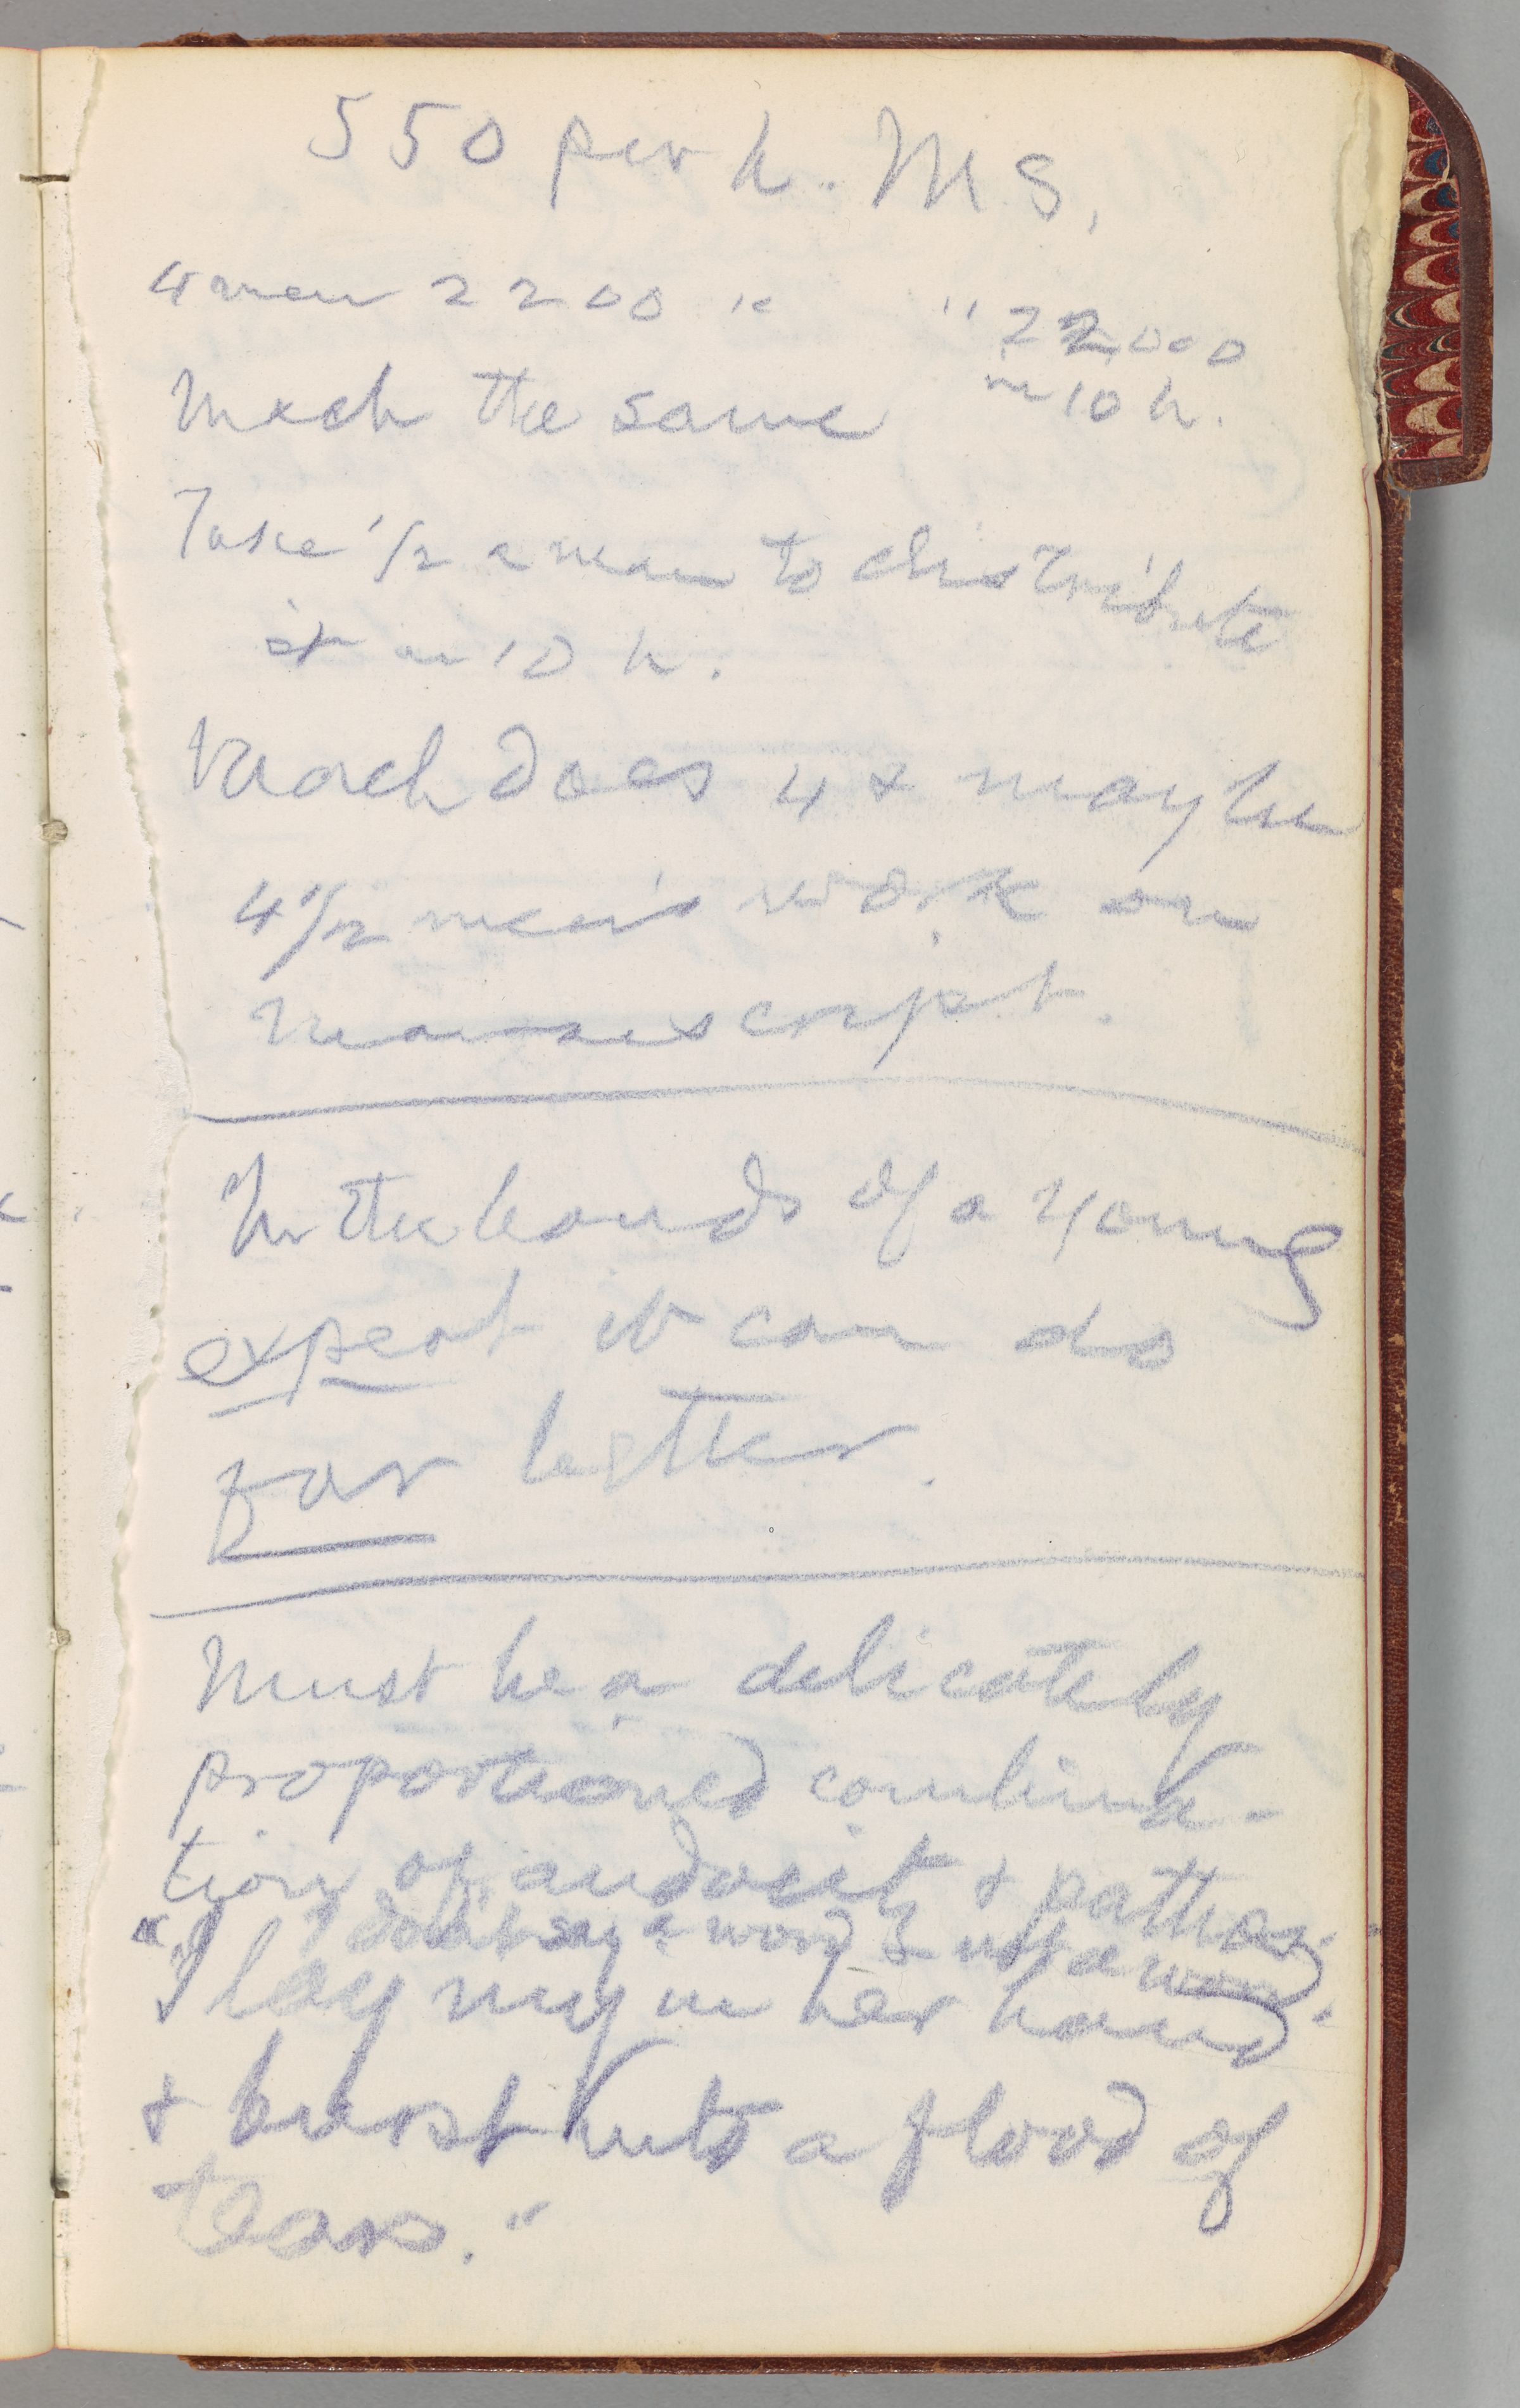 550 per h. MS.
4 men 2200 " " 22,000
in 10 h.
Mach the same
Take 1/2 a man to distribute
it in 10 h.
Mach does 4 & may be
4 1/2 men's work on
manuscript.
In the hands of a young
expert it can do
far better.
Must be a delicately
proportioned combina-
tion of audacity & pathos.
I don't say a word, not a word.
"I lay my in her hand
& burst into a flood of
tears."